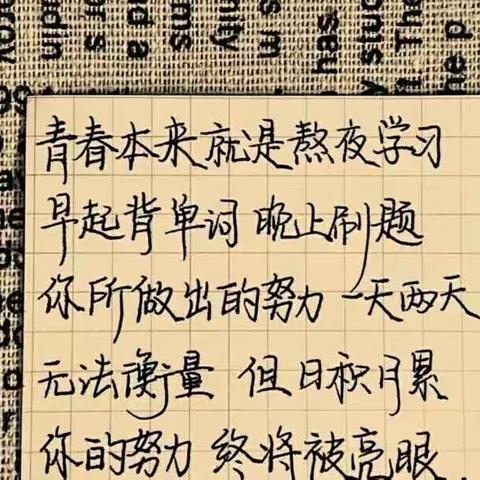 青春本来就是熬夜学习
早起背单词 晚上刷题
你所做出的努力 一天两天
无法衡量 但日积月累
你的努力 终将被亮眼